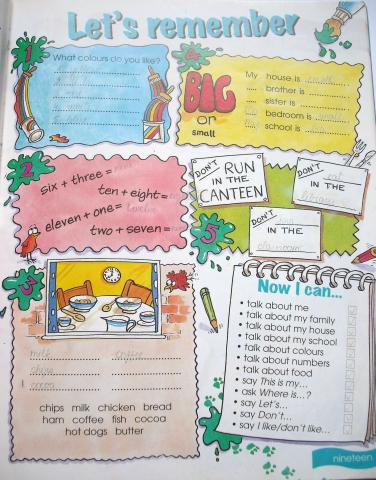 Let's remember
1
What colours do you like?
4
BIG
or
small
My house is small
brother is
sister is
bedroom is small
school is
2
six + three =
ten + eight =
eleven + one = twelve
two + seven =
DON'T RUN
IN THE
CANTEEN
DON'T eat
IN THE
library
DON'T run
IN THE
classroom
5
3
milk coffee
cocoa
chips milk chicken bread
ham coffee fish cocoa
hot dogs butter
Now I can...
• talk about me
• talk about my family
• talk about my house
• talk about my school
• talk about colours
• talk about numbers
• talk about food
• say This is my...
• ask Where is...?
• say Let's...
• say Don't...
• say I like/don't like...
nineteen